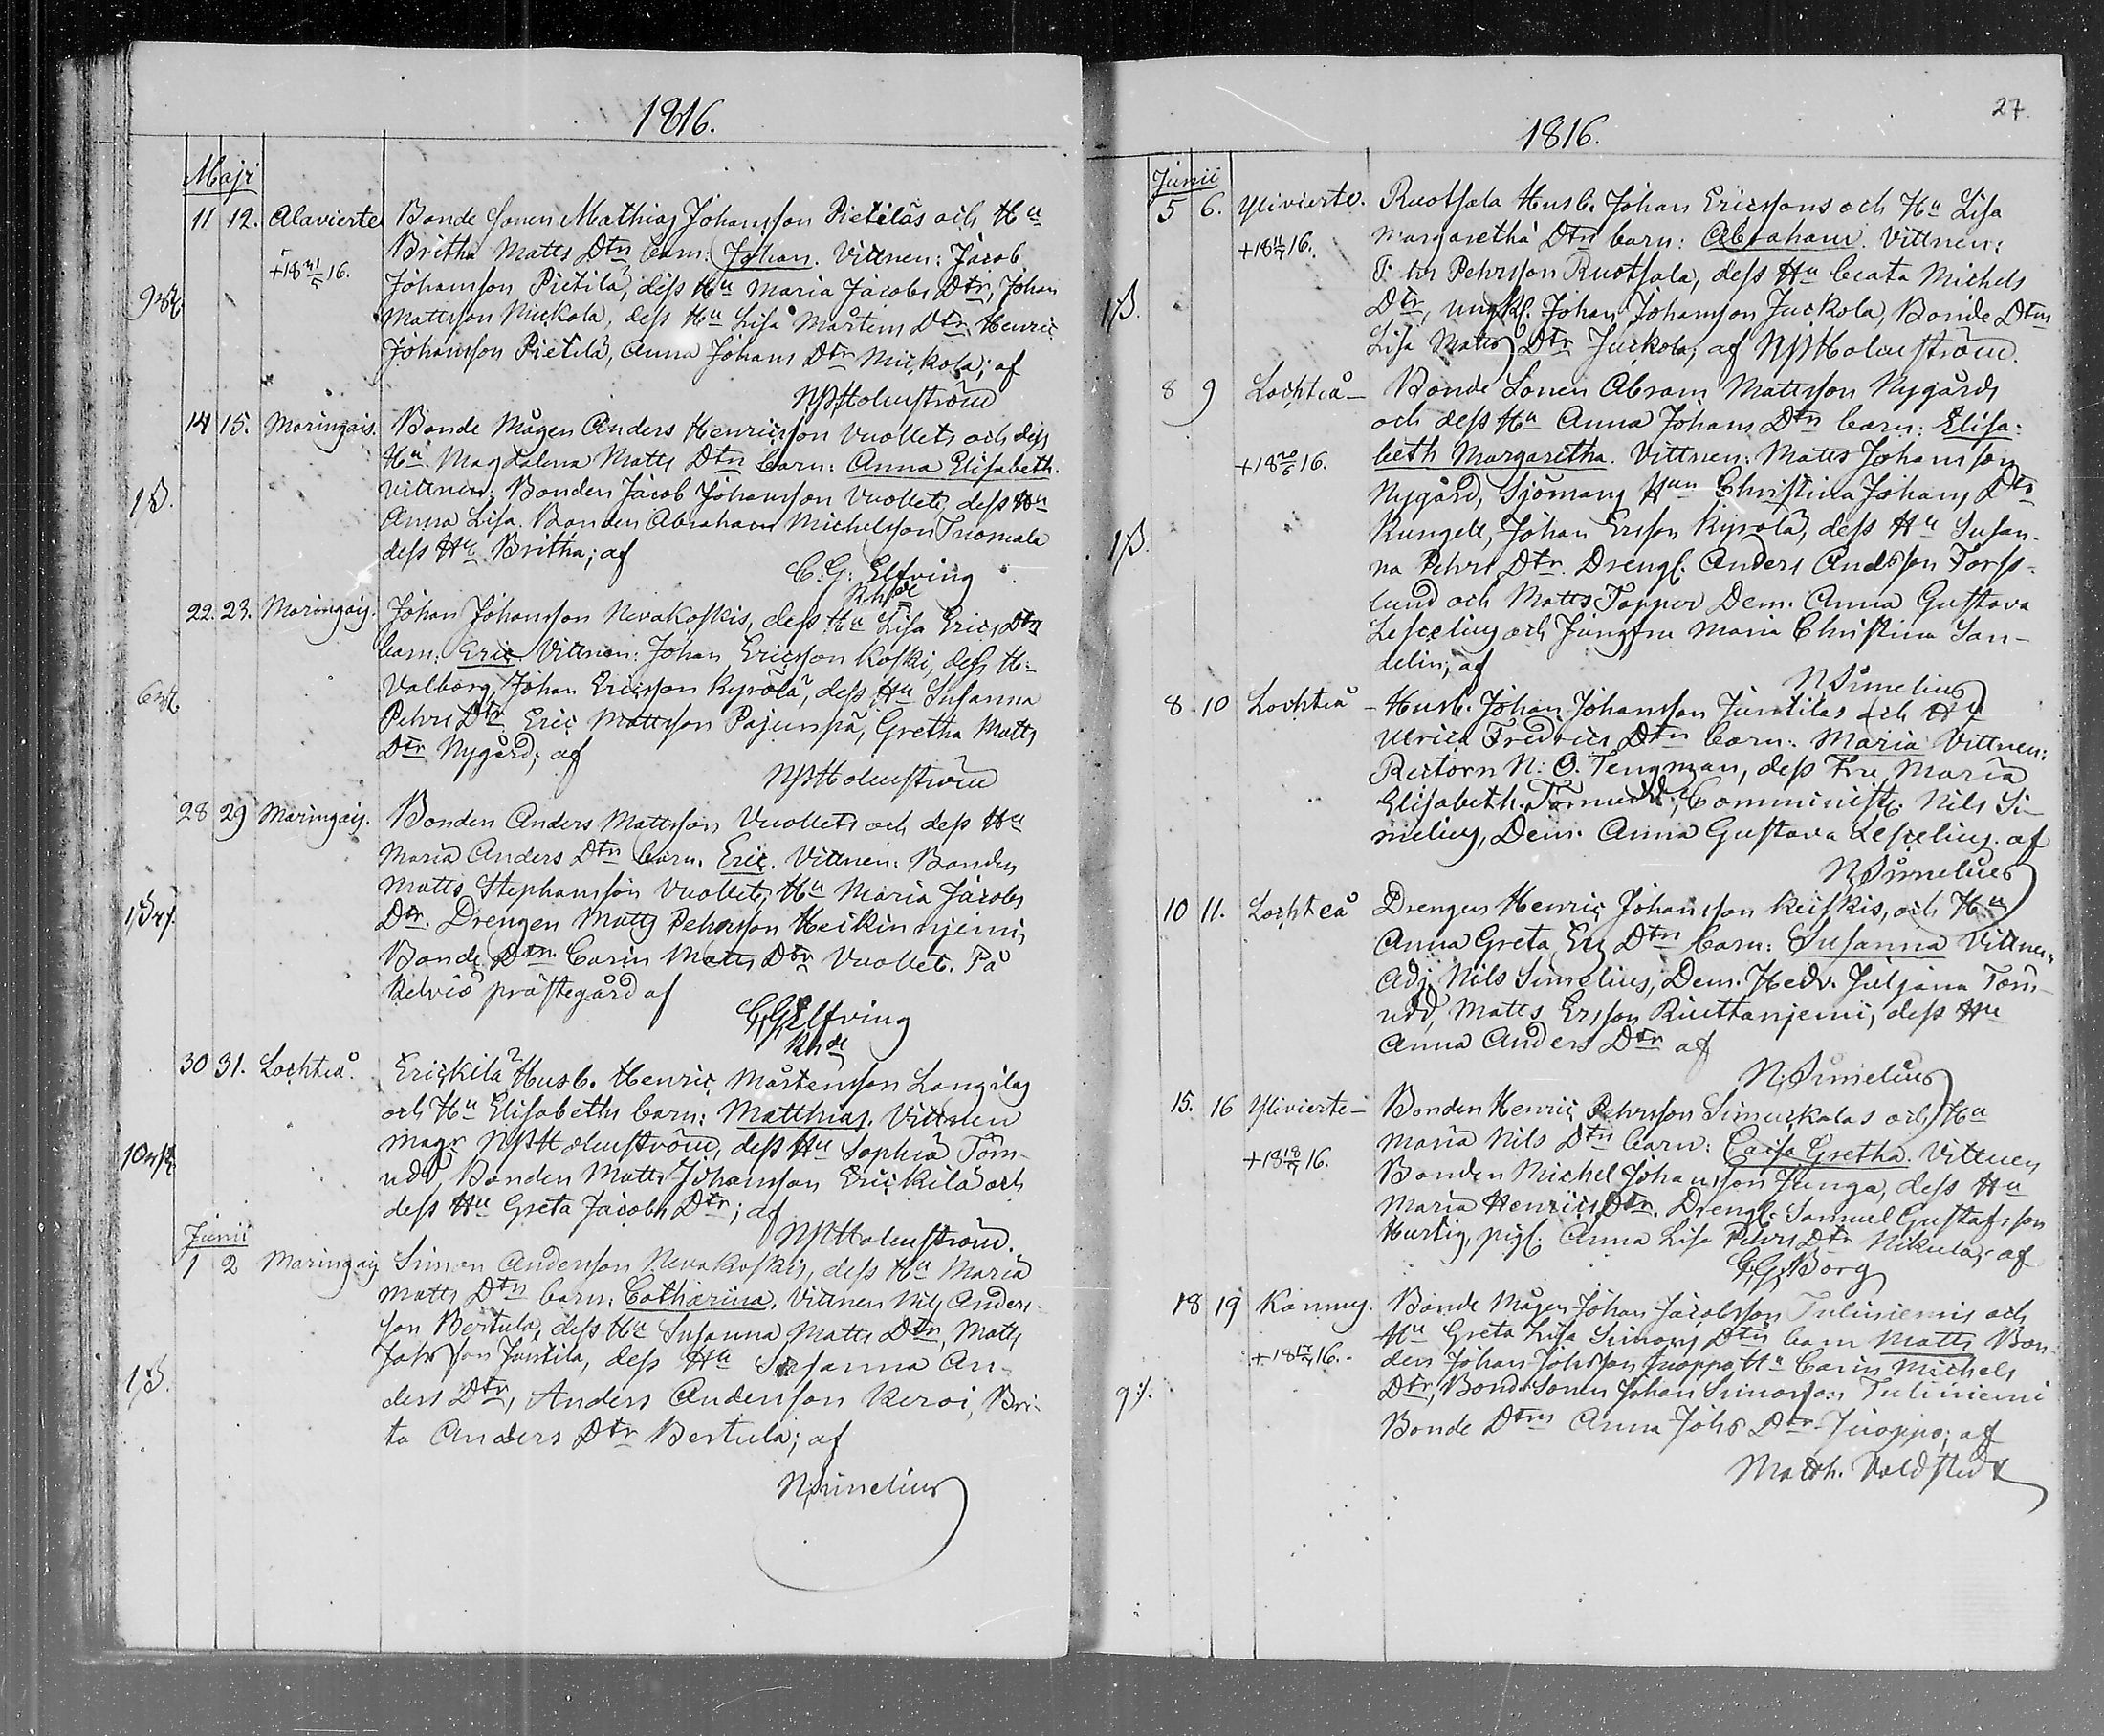 1816.
Maji
11 12. Alavierte Bonde Sonen Mathias Johansson Pietiläs och Hu
Britha Matts Dtrs barn: Johan. Vittnen: Jacob
+18 31/5 16.
Johansson Pietilä, dess Hu Maria Jacobs Dtr, Johan
Mattsson Mickola, dess Hu Lisa Mårtens Dtr Henric
Johansson Pietilä, Anna Johans Dtr Mickola; af
NJHolmström
14 15. Maringais. Bonde Mågen Anders Henricsson Vuollets och dess
Hu Magdalena Matts Dtrs barn: Anna Elisabeth.
Vittnen: Bonden Jacob Johansson Vuollet, dess Hu
1ß.
Anna Lisa. Bonden Abraham Michelsson Tuomala
dess Hu Britha; af
C. G. Elfving
22. 23. Maringais. Johan Johansson Nevakoskis, dess Hu Lisa Erics Dtrs
barn: Eric Vittnen: Johan Ericsson Koski, dess H:
Valborg, Johan Ericsson Kyrölä, dess Hu Susanna
Pehrs Dtr Eric Mattsson Pajunpä, Gretha Matts
Dtr Nygård; af
NJHolmström
28 29 Maringais. Bonden Anders Mattsson Vuollets och dess Hu
Maria Anders Dtrs barn. Eric. Vittnen: Bonden
Matts Stephansson Vuollet, Hu Maria Jacobs
Dtr. Drengen Matts Pehrsson Heikin njemi,
Bonde Dtrn Carin Matts Dtr Vuollet. På
Kelviå prästegård af
CGElfving
30 31. Lochteå. Erickila Husb. Henric Mårtensson Langilas
och Hu Elisabeths barn: Matthias. Vittnen
Magr NJHolmström, dess Hu Sophia Törn-
udd, Bonden Matts Johansson Erickilä och
dess Hu Greta Jacobs Dtr; af
NJHolmström.
Junii
1 2 Maringais Simon Andersson Nevakoskis, dess Hu Maria
Matts Dtrs barn: Catharina. Vittnen Nils Anders-
son Bertula, dess Hu Susanna Matts Dtr, Matts
Johsson Juntila, dess Hu Susanna An-
1ß.
ders Dtr, Anders Andersson Keroi, Bri-
ta Anders Dtr Bertula; af
NSimelius
27
1816.
Junii
5 6. Ylivierte. Ruotsala Husb. Johan Ericssons och Hu Lisa
Margaretha Dtrs barn: Abraham. Vittnen:
+18 11/7 16.
Pehrsson Ruotsala, dess Hu Beata Michels
1ß.
Dtr, ungk. Johan Johansson Juckola, Bonde Dtrn
Lisa Matts Dtr Juckola; af NJHolmström.
8 9 Lochteå Bonde Sonen Abram Mattsson Nygårds
och dess Hu Anna Johans Dtrs barn: Elisa-
beth Margaretha. Vittnen: Matts Johansson
+18 20/6 16.
Nygård, Sjömans Hun Christina Johans Dtr
Rungell, Johan Ersson Kyrölä, dess Hu Susan-
1ß.
na Pehrs Dtr. Drengk. Anders Andersson Forss-
lund och Matts Topper Dem. Anna Gustava
Lescelius och Jungfru Maria Christina San-
delin; af
N. Simelius
8 10 Lochteå Husb. Johan Johansson Juntilas och Hu
Ulrica Fredrics Dtrs barn: Maria Vittnen:
Rectorn N: O. Tengman, dess Fru Maria
Elisabeth Törnudd, Comminist. Nils Si-
melius, Dem. Anna Gustava Lescelius. af
NSimelius
10 11. Lochteå Drengen Henric Johansson Keiskis, och Hu
Anna Greta Ers Dtrs barn: Susanna Vittnen,
Adj. Nils Simelius, Dem. Hedv. Juljana Törn-
udd, Matts Ersson Ruottanjemi, dess Hu
Anna Anders Dtr af
N. Simelius
15. 16 Ylivierte Bonden Henric Pehrsson Simuckalas och Hu
Maria Nils Dtrs barn: Caisa Gretha. Vittnen
+18 18/7 16.
Bonden Michel Johansson Junga, dess Hu
Maria Henrics Dtr. Drengk. Samuel Gustafsson
Hurtig, pig. Anna Lisa Pehrs Dtr Nikula; af
CGBorg
18 19 Kannus. Bonde Mågen Johan Jacobsson Tuliniemis och
Hu Greta Lisa Simons Dtrs barn Matts Bon-
den Johan Johsson Juoppo Hu Carin Michels
Dtr, Bonde Sonen Johan Simonsson Tuliniemi
Bonde Dtrn Anna Johs Dtr Juoppo; af
Matth. Valdstedt